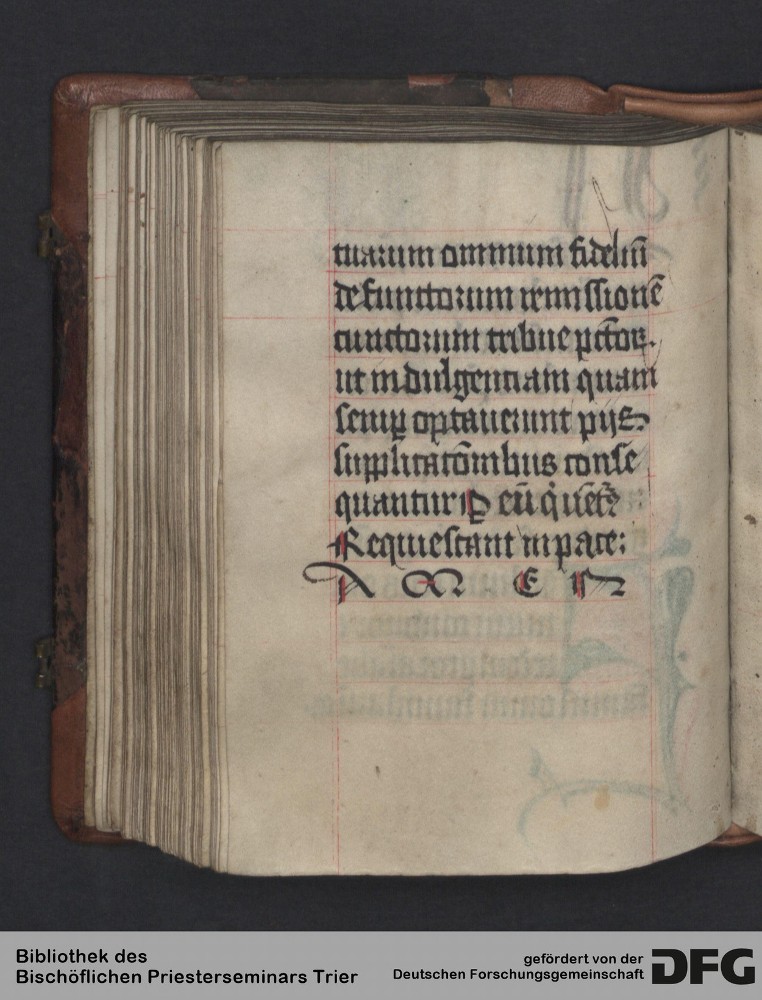 tuarum omnium fideliũ
defunctorum remissionẽ
cunctorum tribue pctõꝝ.
ut indulgentiam quam
semꝑ optauerunt pijs
supplicatõnibus conse
quantur ꝑ eũ
Requiescant in pace:
A M E N
Bibliothek des
Bischöflichen Priesterseminars Trier
gefördert von der
Deutschen Forschungsgemeinschaft
DFG